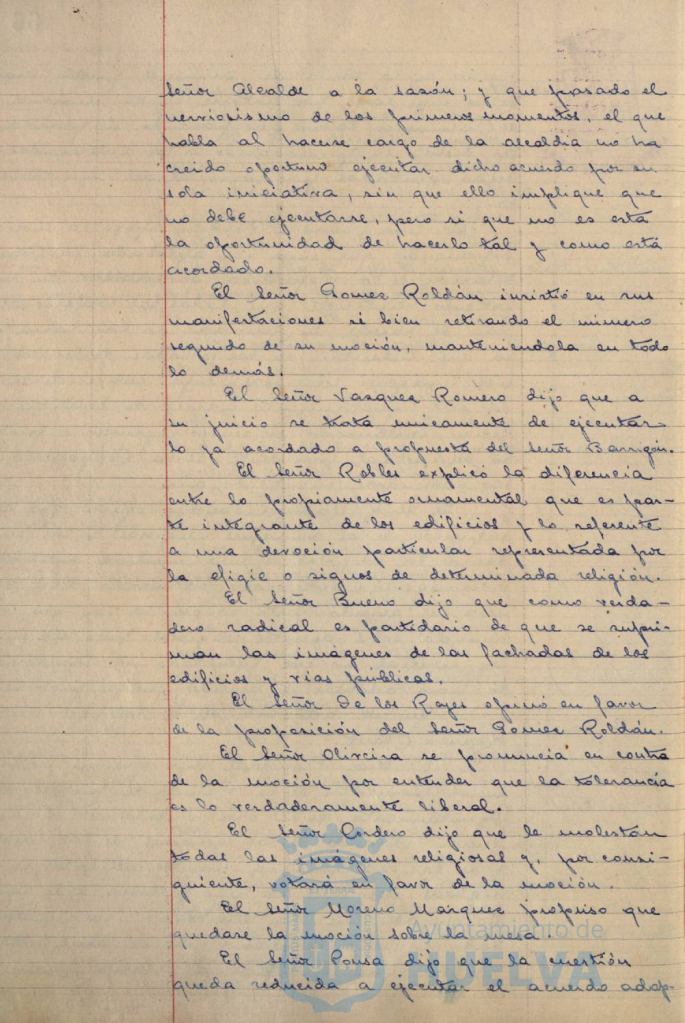 Señor Alcalde a la sazón; y que pasado el
nerviosismo de los primeros momentos, el que
habla al hacerse cargo de la alcaldia no ha
creido oportuno ejecutar dicho acuerdo por su
sola iniciativa, sin que ello implique que
no debe ejecutarse, pero si que no es esta
la oportunidad de hacerlo tal y como está
acordado.
El Señor Gomez Roldán insistió en sus
manifestaciones si bien retirando el número
segundo de su moción, manteniendola en todo
lo demás.
El Señor Vasquez Romero dijo que a
su juicio se trata unicamente de ejecutar
lo ya acordado a propuesta del Señor Barrigón.
El Señor Robles explicó la diferencia
entre lo propiamente ornamental que es par-
te integrante de los edificios y lo referente
a una devoción particular representada por
la efigie o signos de determinada religión.
El Señor Bueno dijo que como verda-
dero radical es partidario de que se supri-
man las imágenes de las fachadas de los
edificios y vias públicas.
El Señor de los Reyes opinó en favor
de la proposición del Señor Gomez Roldán.
El Señor Oliveira se pronuncia en contra
de la moción por entender que la tolerancia
es lo verdaderamente liberal.
El Señor Cordero dijo que le molestan
todas las imágenes religiosas y, por consi-
guiente, votará en favor de la moción.
El Señor Moreno Márquez propuso que
quedase la moción sobre la mesa.
El Señor Ponsa dijo que la cuestión
queda reducida a ejecutar el acuerdo adop-
Ayuntamiento de
HUELVA